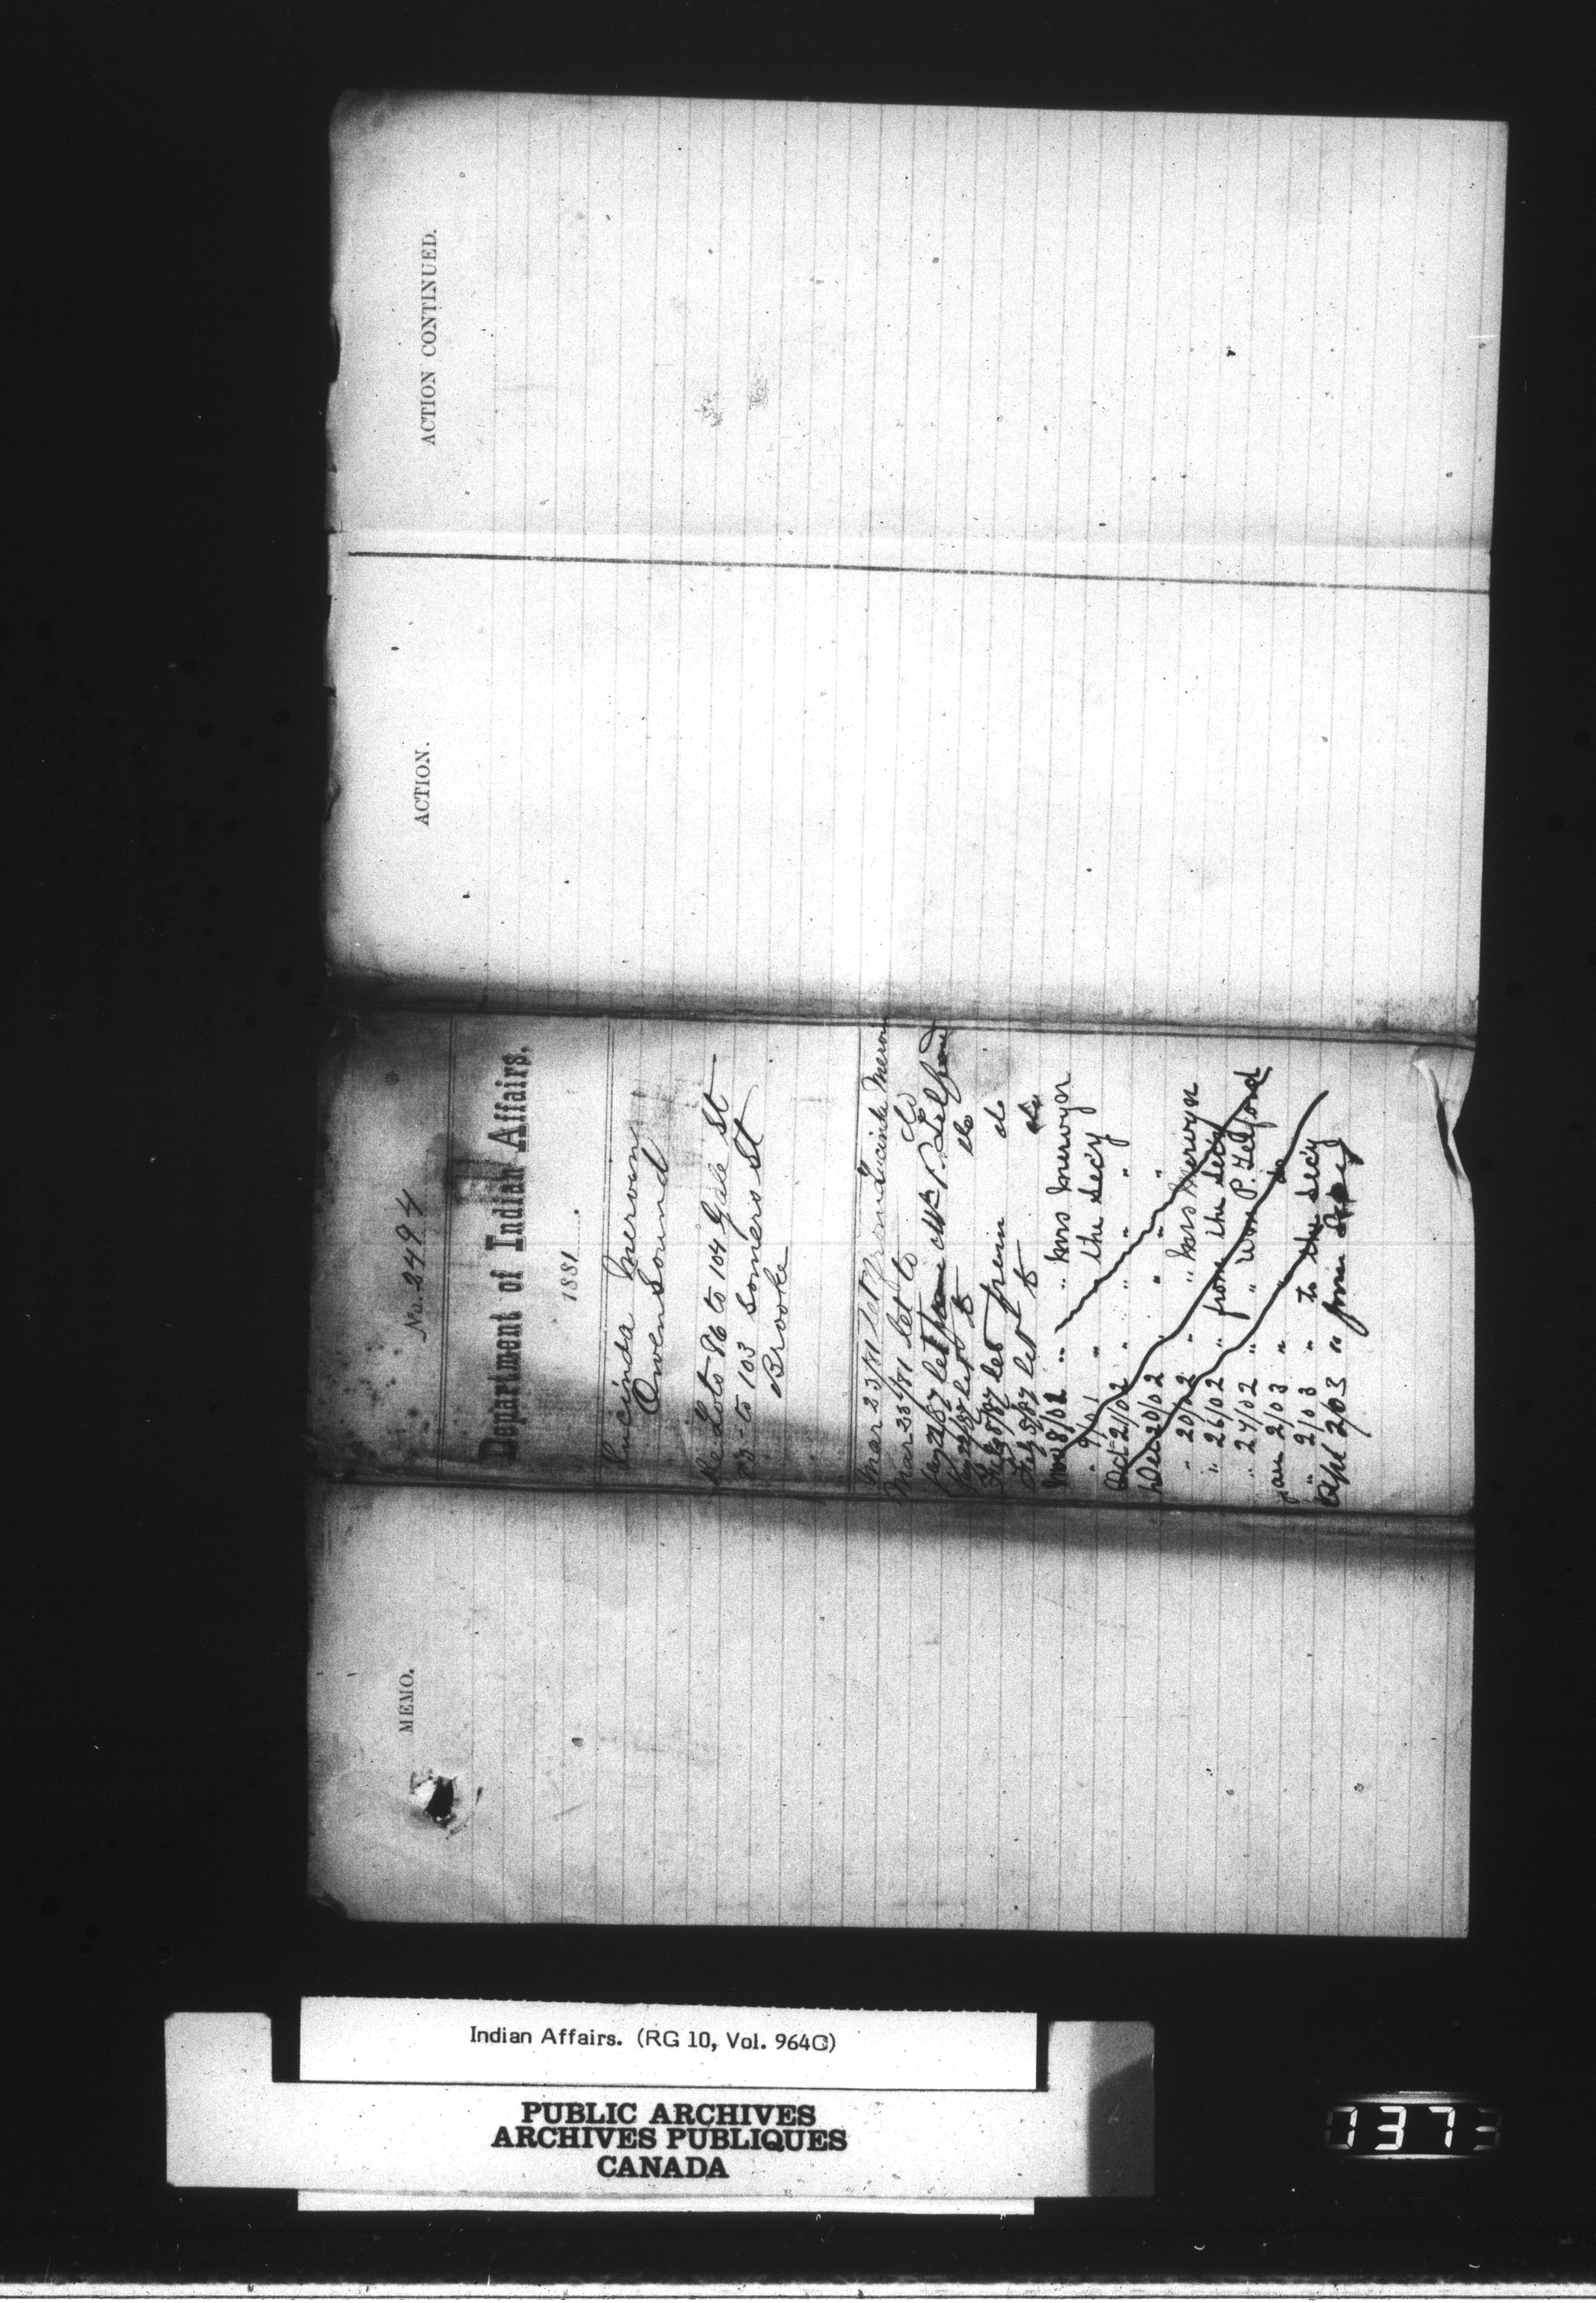 ACTION CONTINUED.
ACTION.
No. 2494
Department of Indian Affairs.
1881
Lucinda Merown
Owen Sound
Re Lots 86 to 104 Gale St
to 103 Somers St
Brooke
Mar 23/81 let from Lucinda Merown
Mar 23/81 let to do
Jany 22/87 let P. Telford
Jany 22/87 let to do
Feby 8/87 let from do
Feby 8/87 let to do
8/02 " " Mrs Merwyn
" 9/01 " the Secy
Oct 21/02 " " " "
Dec 20/02 " " " "
" 20/02 " " Mrs Merwyn
" 26/02 " from the Secy
" 24/02 " " Wm P. Telford
Jan 2/03 " " do
" 2/03 " to the Secy
Apl 2/03 " from Secy
MEMO.
Indian Affairs. (RG 10, Vol. 964C)
PUBLIC ARCHIVES
ARCHIVES PUBLIQUES
CANADA
1373